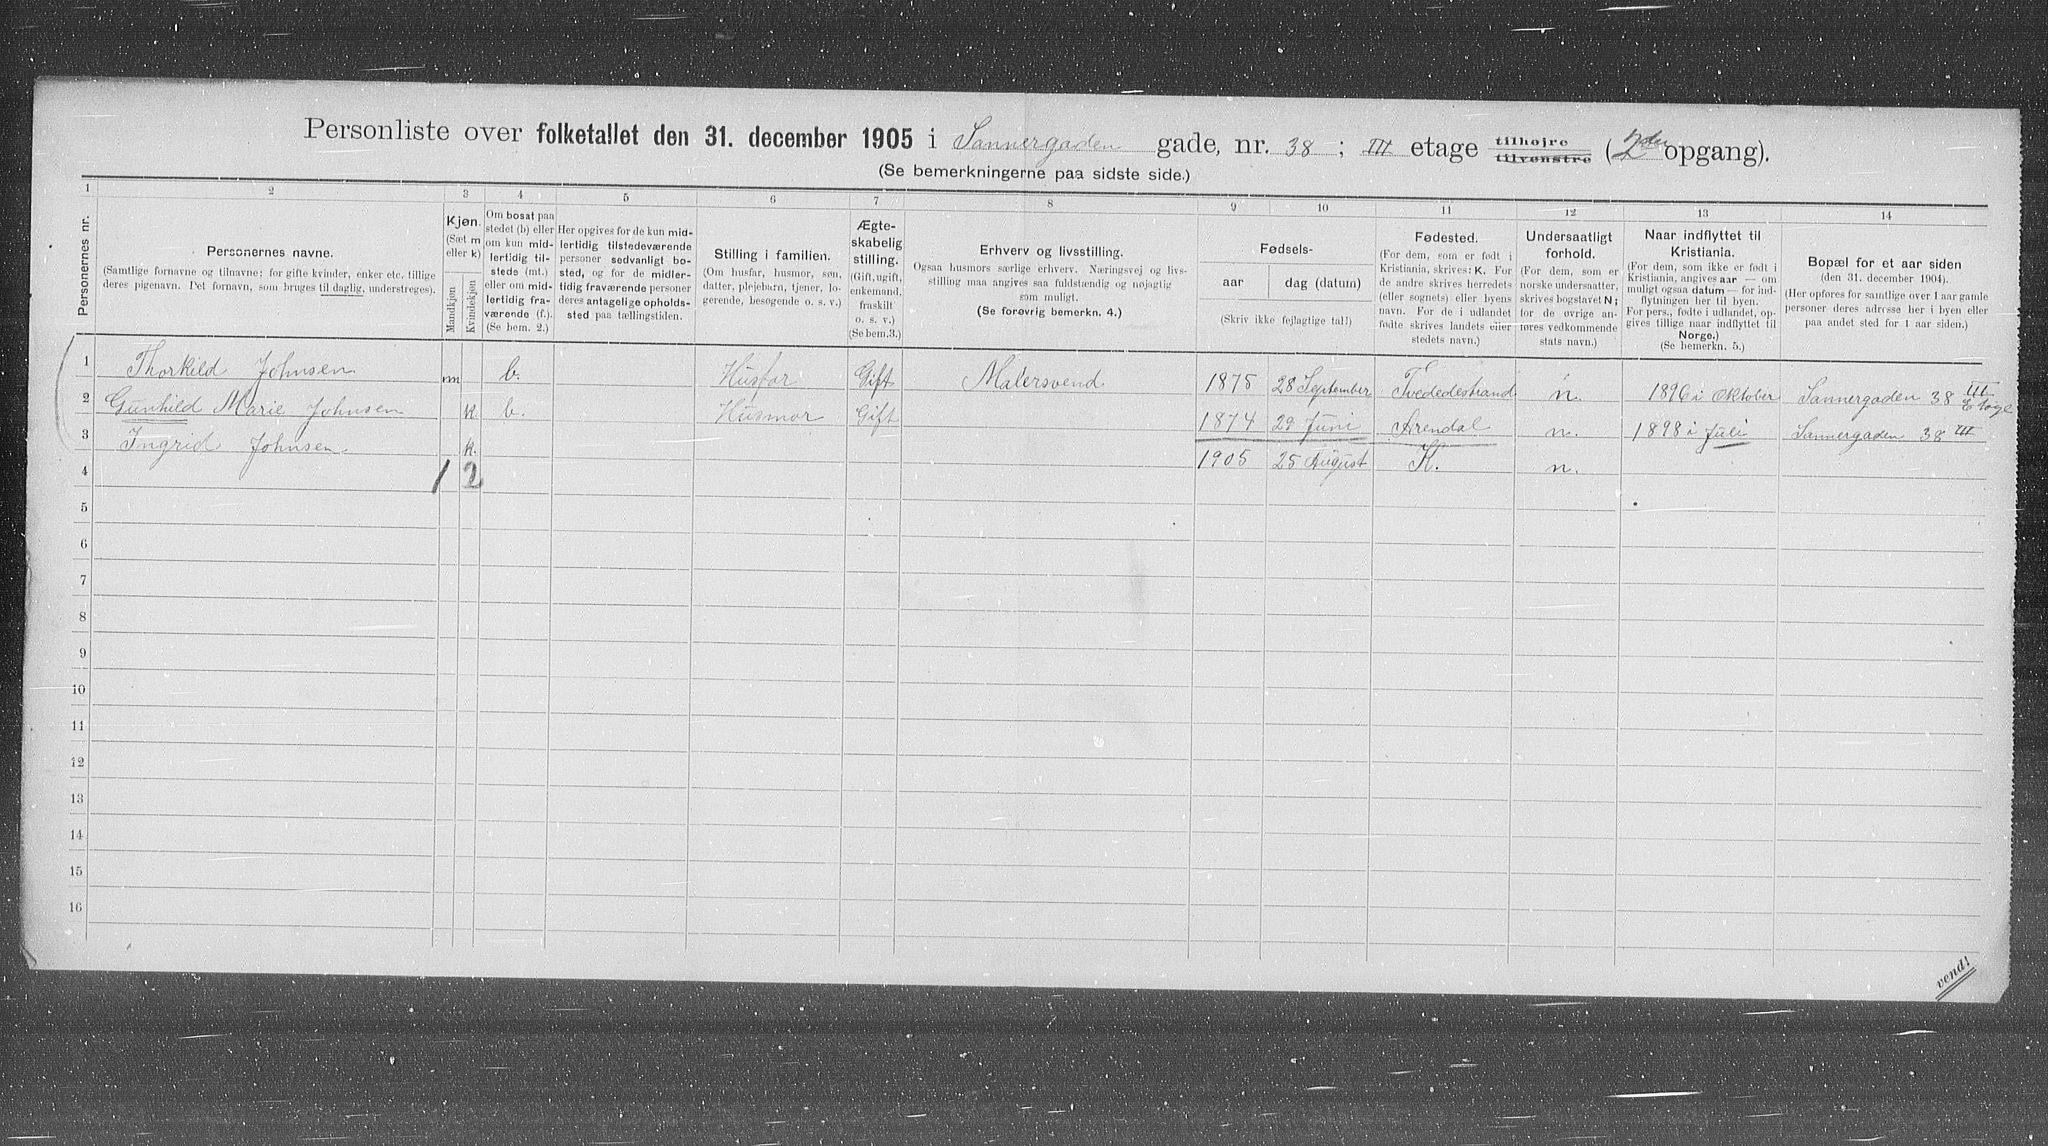 Personliste over folketallet den 31. december 1905 i Sannergaden gade, nr. 38 ; III etage tilhøjre tilvenstre (2den opgang).
(Se bemerkningerne paa sidste side.)
1 2 3 4 5 6 7 8 9 10 11 12 13 14
Personernes nr.
Personernes navne.
(Samtlige fornavne og tilnavne; for gifte kvinder, enker etc. tillige
deres pigenavn. Det fornavn, som bruges til daglig, understreges).
Kjøn.
(Sæt m
eller k)
Mandkjøn
Kvindekjøn
Om bosat paa
stedet (b) eller
om kun mid-
lertidig til-
stede (mt.)
eller om mid-
lertidig fra-
værende (f.).
(Se bem. 2.)
Her opgives for de kun mid-
lertidig tilstedeværende
personer sedvanlig bo-
sted, og for de midler-
tidig fraværende personer
deres antagelige opholds-
sted paa tællingstiden.
Stilling i familien.
(Om husfar, husmor, søn,
datter, plejebarn, tjener, lo-
gerende, besøgende o. s. v.)
Ægte-
skabelig
stilling.
(Gift, ugift,
enkemand,
fraskilt
o. s. v.)
(Se bem. 3.)
Erhverv og livsstilling.
Ogsaa husmors særlige erhverv. Næringsvej og livs-
stilling maa angives saa fuldstændig og nøjagtig
som muligt.
(Se forøvrig bemerkn. 4.)
Fødsels-
aar
dag (datum)
(Skriv ikke fejlagtige tal!)
Fødested.
(For dem, som er født i
Kristiania, skrives: K. For
de andre skrives herredets
(eller sognets) eller byens
navn. For de i udlandet
fødte skrives landets eller
stedets navn.)
Undersaatligt
forhold.
(For dem, som er
norske undersaatter,
skrives bogstavet N;
for de øvrige an-
føres vedkommende
stats navn.)
Naar indflyttet til
Kristiania.
(For dem, som ikke er født i
Kristiania, angives aar — om
muligt ogsaa datum — for ind-
flytningen her til byen.
For pers., fødte i udlandet, op-
gives tillige naar indflyttet til
Norge.)
(Se bemerkn. 5.)
Bopæl for et aar siden
(den 31. december 1904).
(Her opføres for samtlige over 1 aar gamle
personer deres adresse her i byen eller
paa andet sted for 1 aar siden.)
1 Thorkild Johnsen m b. Husfar Gift Malersvend 1875 28 September Tvededestrand n. 1896 i Oktober Sannergaden 38 III Etage
2 Gunhild Marie Johnsen k b. Husmor Gift 1874 29 Juni Arendal n. 1898 i Juli Sannergaden 38 III
3 Ingrid Johnsen k. 1905 25 August K. n.
4 1 2
5
6
7
8
9
10
11
12
13
14
15
16
vend!